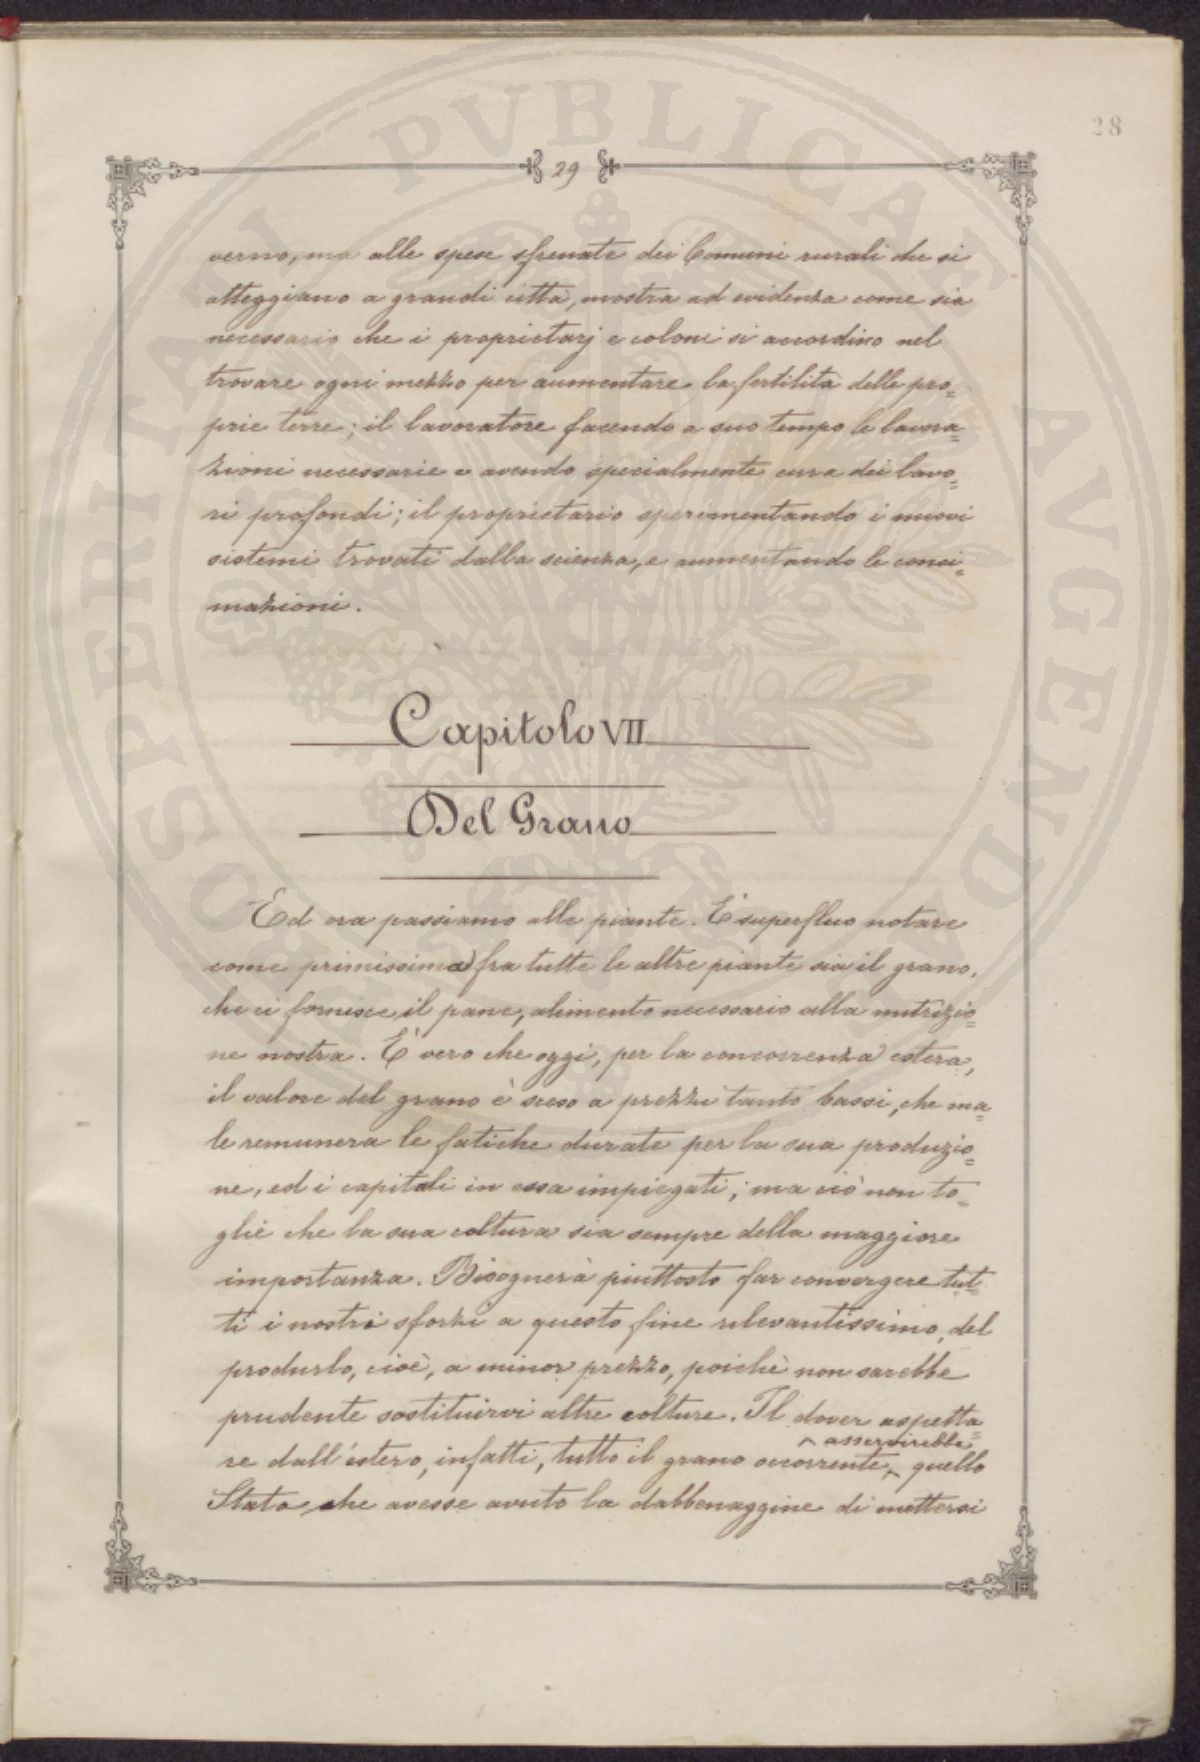 28
29
verno, ma alle spese sfrenate dei Comuni rurali che si
atteggiano a grandi città, mostra ad evidenza come sia
necessario che i proprietarj e coloni si accordino nel
trovare ogni mezzo per aumentare la fertilità delle pro=
prie terre; il lavoratore facendo a suo tempo le lavora=
zioni necessarie e avendo specialmente cura dei lavo=
ri profondi; il proprietario sperimentando i nuovi
sistemi trovati dalla scienza, e aumentando le conci=
mazioni.
Capitolo VII
Del Grano
Ed ora passiamo alle piante. E' superfluo notare
come primissima fra tutte le altre piante sia il grano,
che ci fornisce il pane, alimento necessario alla nutrizio=
ne nostra. È vero che oggi, per la concorrenza estera,
il valore del grano è sceso a prezzi tanto bassi, che ma=
le remunera le fatiche durate per la sua produzio=
ne, ed i capitali in essa impiegati; ma ciò non to=
glie che la sua coltura sia sempre della maggiore
importanza. Bisognerà piuttosto far convergere tut=
ti i nostri sforzi a questo fine rilevantissimo, del
produrlo, cioè, a minor prezzo, poichè non sarebbe
prudente sostituirvi altre colture. Il dover aspetta=
asservirebbe
re dall'estero, infatti, tutto il grano occorrente, quello
Stato che avesse avuto la dabbenaggine di mettersi
PROSPERITATI PVBLICAE AVGENDAE